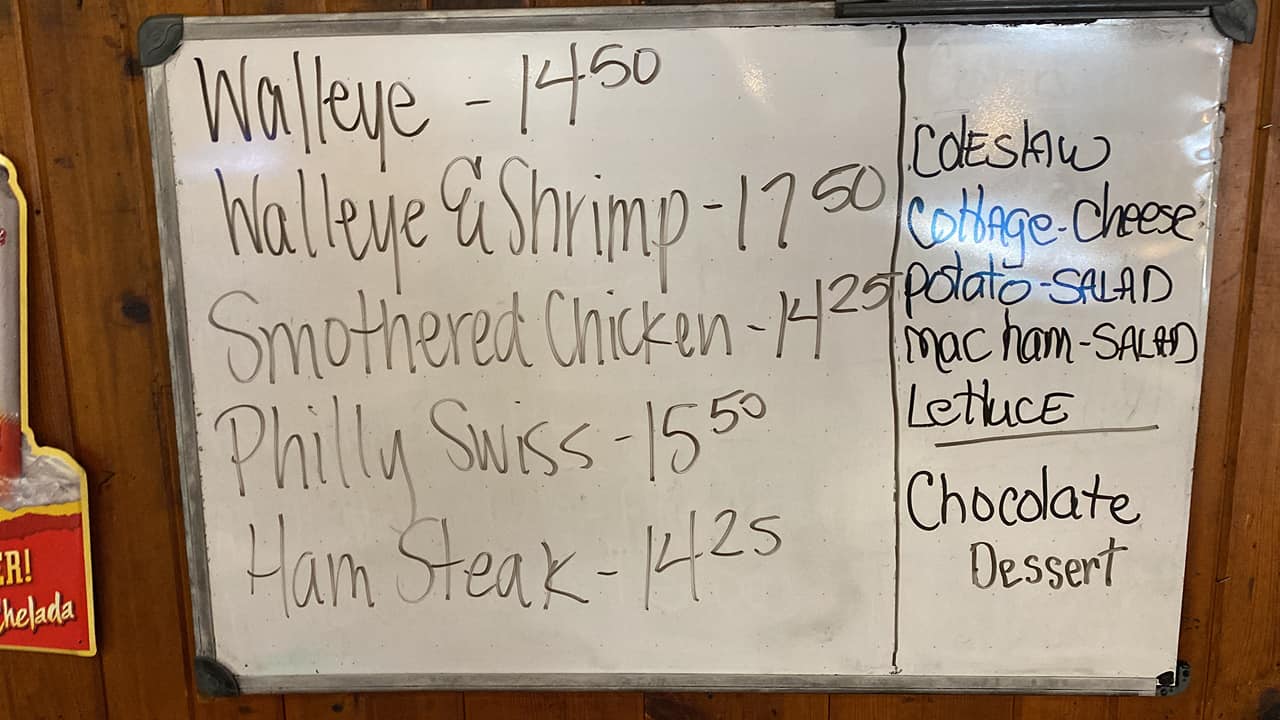 Walleye - 14 50
Walleye & Shrimp - 17 50
Smothered Chicken - 14 25
Philly Swiss - 15 50
Ham Steak - 14 25
COLESLAW
Cottage-Cheese
Potato-SALAD
mac ham-SALAD
LettuCE
Chocolate
Dessert
ER!
Chelada